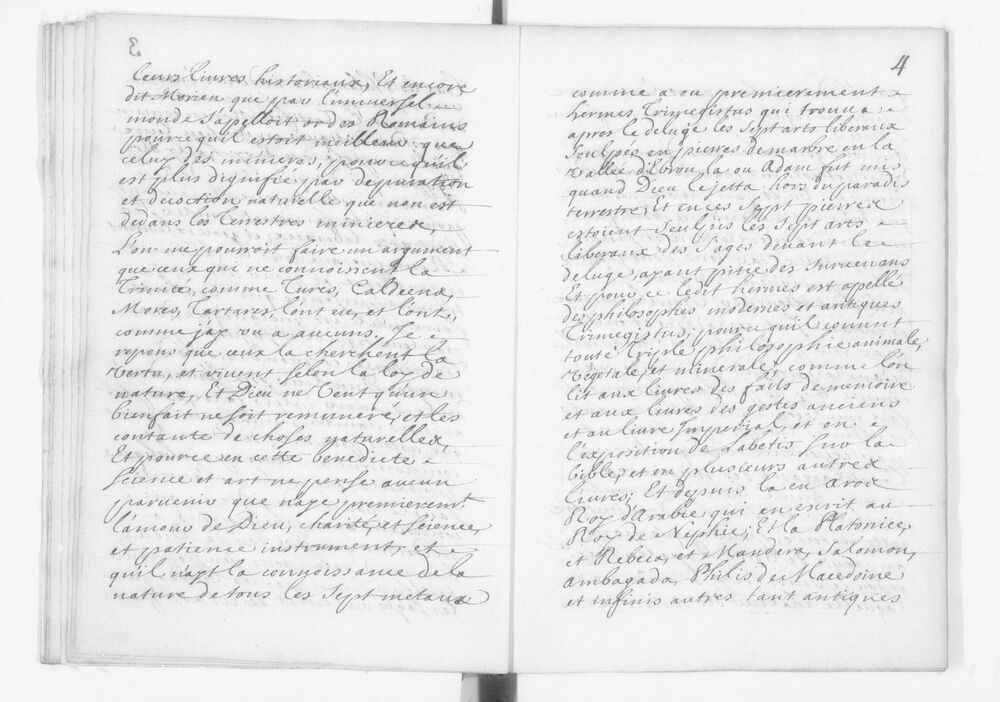 3
leurs livres historiaux, Et encore
dit Morien que par l'universel
monde s'apelloit or des Romains
pource quil estoit meilleur que
celuy des minieres, pource qu'il
est plus dignifié par depuration
et decoction naturelle que non est
dedans les terrestres minieres,
L'on me pourroit faire un argument
que ceux qui ne connoissent la
Trinité, comme Turcs, Caldeens,
Mores, Tartares, l'ont eu, et l'ont,
comme j'ay vu a aucuns. Je
repons que ceux la cherchent la
Vertu, et vivent selon la loy de
nature, Et Dieu ne veut qu'un
bienfait ne soit remuneré, et les
contante de choses naturelles
Et pource en cette benedicte
science et art ne pense aucun
parvenir que n'aye premierem.t
l'amour de Dieu, charité, et science,
et patience instrument, et
quil n'ayt la connoissance de la
nature de tous les sept metaux
4
comme a eu premierement
hermes Trimegistus qui trouva
apres le deluge les sept arts liberaux
sculpés en pierres de marbre en la
Vallée d'Ebron, la ou Adam fut mis
quand Dieu le jetta hors du paradis
terrestre, Et en ces sept pierres
estoient sculpis les sept arts
liberaux des sages devant le
deluge, ayant pitié des survenans
Et pour ce ledit hermes est apellé
des philosophes modernes et antiques
Trimegistus, pource quil connut
toute triple philosophie animale,
Vegetale, et minerale, comme l'on
lit aux livres des faits de memoire
et aux livres des gestes anciens
et au livre Imperial, et en
l'exposition de Labetis sur la
bible, et en plusieurs autres
livres; Et depuis la eu Aros
Roy d'Arabie qui en escrit au
Roy de Nephie; Et la Platonice,
et Rebeca, et Mandera, Salomon,
Ambagada, Philis de Macedoine
et infinis autres tant antiques